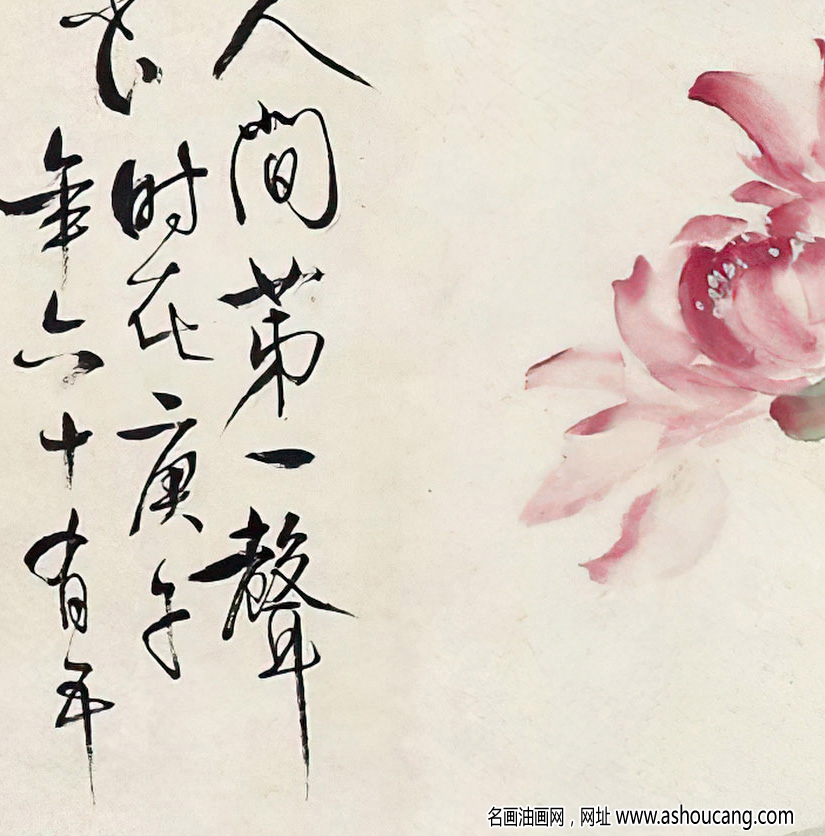 人間第一聲
时在庚午
年六十有五
名画油画网，网址 www.ashoucang.com